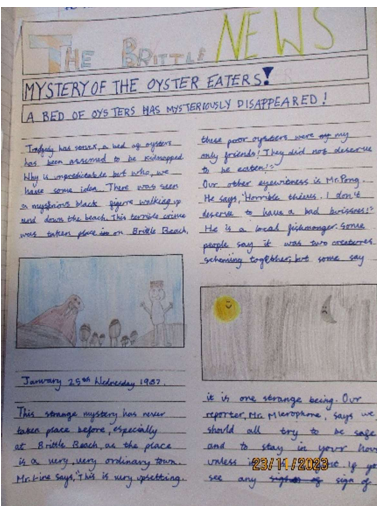 THE BRITTLE NEWS
MYSTERY OF THE OYSTER EATERS!
A BED OF OYSTERS HAS MYSTERIOUSLY DISAPPEARED!
has sonax, a bed of oysters
has been assumed to be kidnapped
Why is unpredictable but who, we
have some idea. There was seen
a mysterious black figure walking up
and down the beach. This terrible crime
was taken place is on Brittle Beach,
January 25th Wednesday 1987.
This strange mystery has never
taken place before, especially
at Brittle Beach, as the place
is a very, very ordinary town.
says, "This is very upsetting.
these poor oysters were my
only friends! They did not deserve
to be eaten!"
Our other eyewitness is Mr. Prong.
He says, "Horrible thieves. I don't
deserve to have a bad
He is a local fishmonger. Some
people say it was two creatures
scheming together, but some say
it is one strange being. Our
reporter, Mr. Microphone, says we
should all try to be safe
and to stay in your
unless
see any sign of
23/11/2023